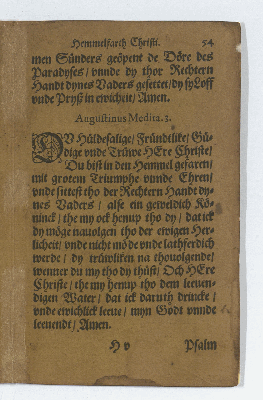 Hemmelfarth Christi. 54
men Sünders geöpent de Döre des
Paradyses / vnnde dy thor Rechtern
Handt dynes Vaders gesettet / dy sy Loff
vnde Pryß in ewicheit / Amen.
Augustinus Medita. 3.
OV Hüldesalige / Fründtlike / Gü-
dige vnde Trüwe HEre Christe /
Du bist in den Hemmel gefaren /
mit grotem Triumphe vnnde Ehren /
vnde sittest tho der Rechtern Handt dy-
nes Vaders / alse ein geweldich Kö-
ninck / the my ock henup tho dy / dat ick
dy möge nauolgen tho der ewigen Her-
licheit / vnde nicht möde vnde lathferdich
werde / dy trüwliken na thouolgende /
wenner du my tho dy thüst / Och HEre
Christe / the my henup tho dem leuen-
digen Water / dat ick daruth drincke /
vnde ewichlick leeue / myn Godt vnnde
leeuendt / Amen.
H v Psalm